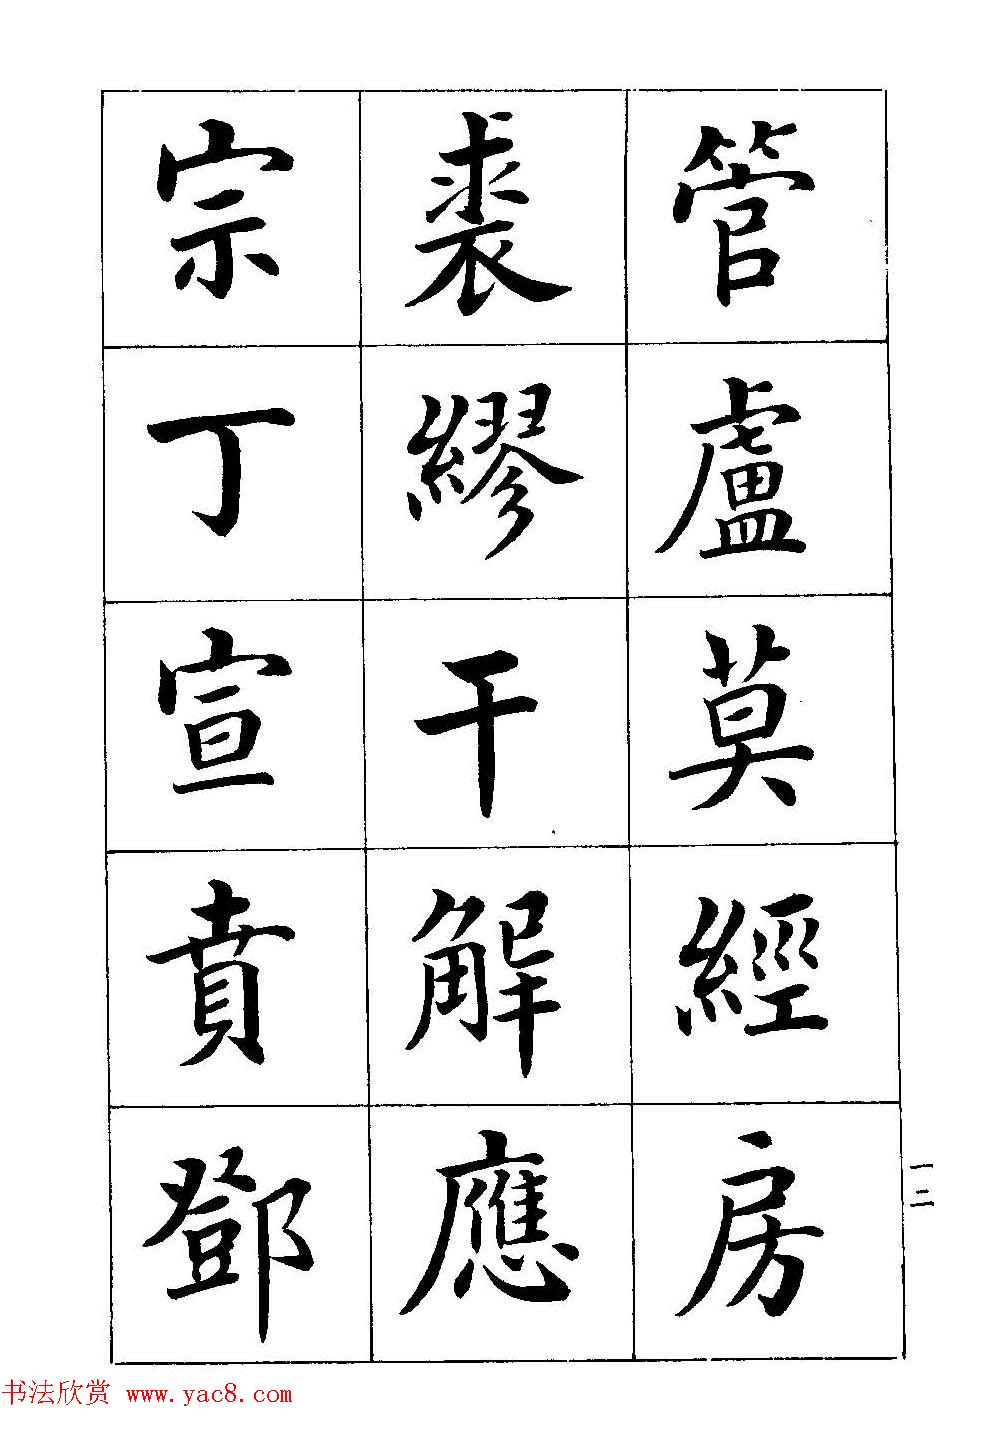 管盧莫經房
裘繆干解應
宗丁宣賁鄧
一二
书法欣赏 www.yac8.com